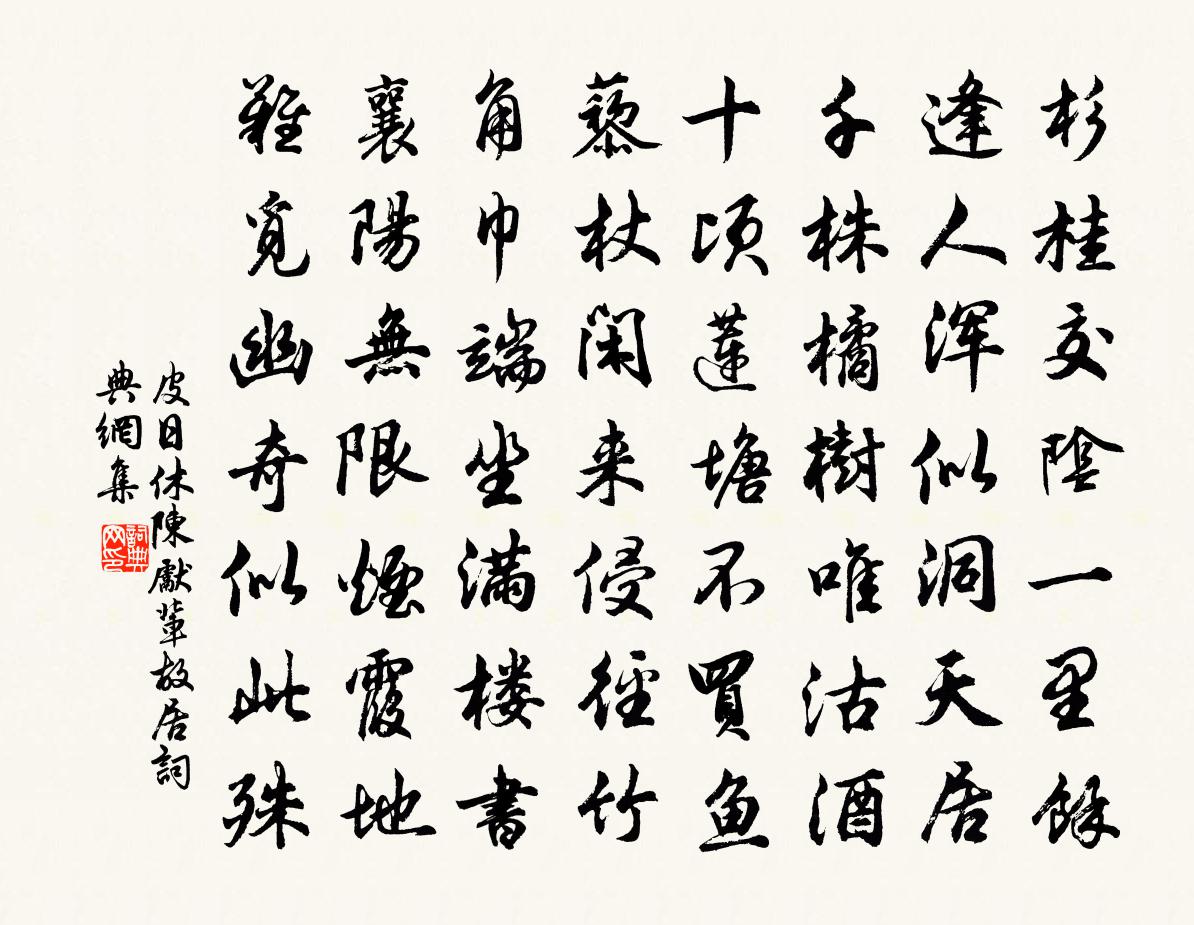 杉桂交陰一里餘
逢人渾似洞天居
千株橘樹唯沽酒
十頃蓮塘不買魚
藜杖閑来侵徑竹
角巾端坐滿楼書
襄陽無限煙霞地
難覓幽奇似此殊
皮日休陳獻輩故居詞
典網集
詞典
网印